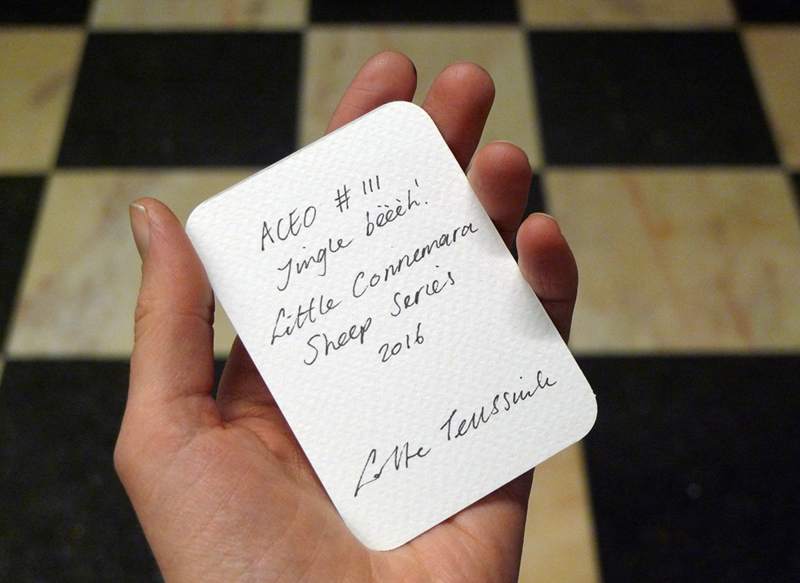 ACEO # 111
Jingle bèèèh!
Little Connemara
Sheep Series
2016
Lotte Teussink